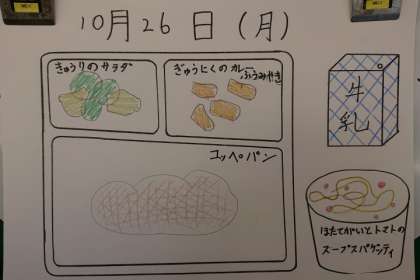 10月26日(月)
きゅうりのサラダ
ぎゅうにくのカレー
ふうみやき
コッペパン
牛
乳
ほたてがいとトマトの
スープスパゲッティ